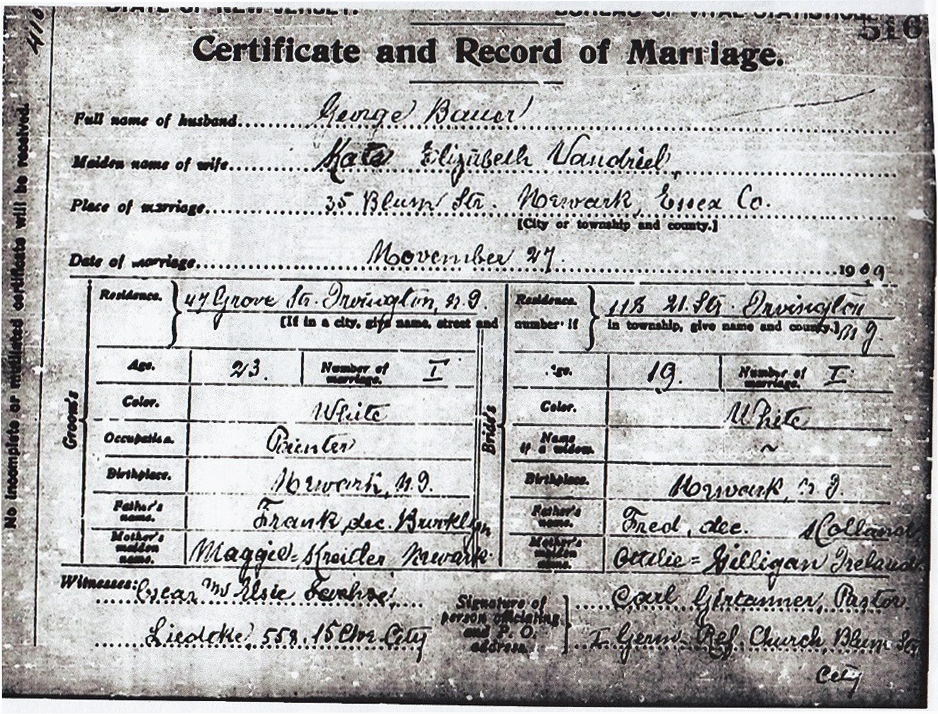 STATE OF NEW JERSEY. BUREAU OF VITAL STATISTICS
516
416
Certificate and Record of Marriage.
Full name of husband George Bauer
Maiden name of wife Kate Elizabeth Vandriel
Place of marriage 35 Blum Str. Newark, Essex Co.
[City or township and county.]
Date of marriage November 27. 1909
No incomplete or mutilated certificate will be received.
Groom's
Residence. 47 Grove Str. Irvington, N.J.
[If in a city, give name, street and
Age. 23. Number of marriage. I
Color. White
Occupation. Painter
Birthplace. Newark, N.J.
Father's name. Frank, dec. Brooklyn
Mother's maiden name. Maggie = Kreidler Newark
Bride's
Residence. 118 21. Str. Irvington N.J.
number: if in township, give name and county.]
Age. 19. Number of marriage. I
Color. White
Name if a widow. ~
Birthplace. Newark, N.J.
Father's name. Fred, dec. Holland
Mother's maiden name. Ottilie = Gilligan Ireland
Witnesses: Oscar Elsie
Liedtke, 558. 15 Ave. City
Signature of person officiating and P. O. address.
Carl Girtanner, Pastor
I. Germ. Ref. Church Blum Str
City